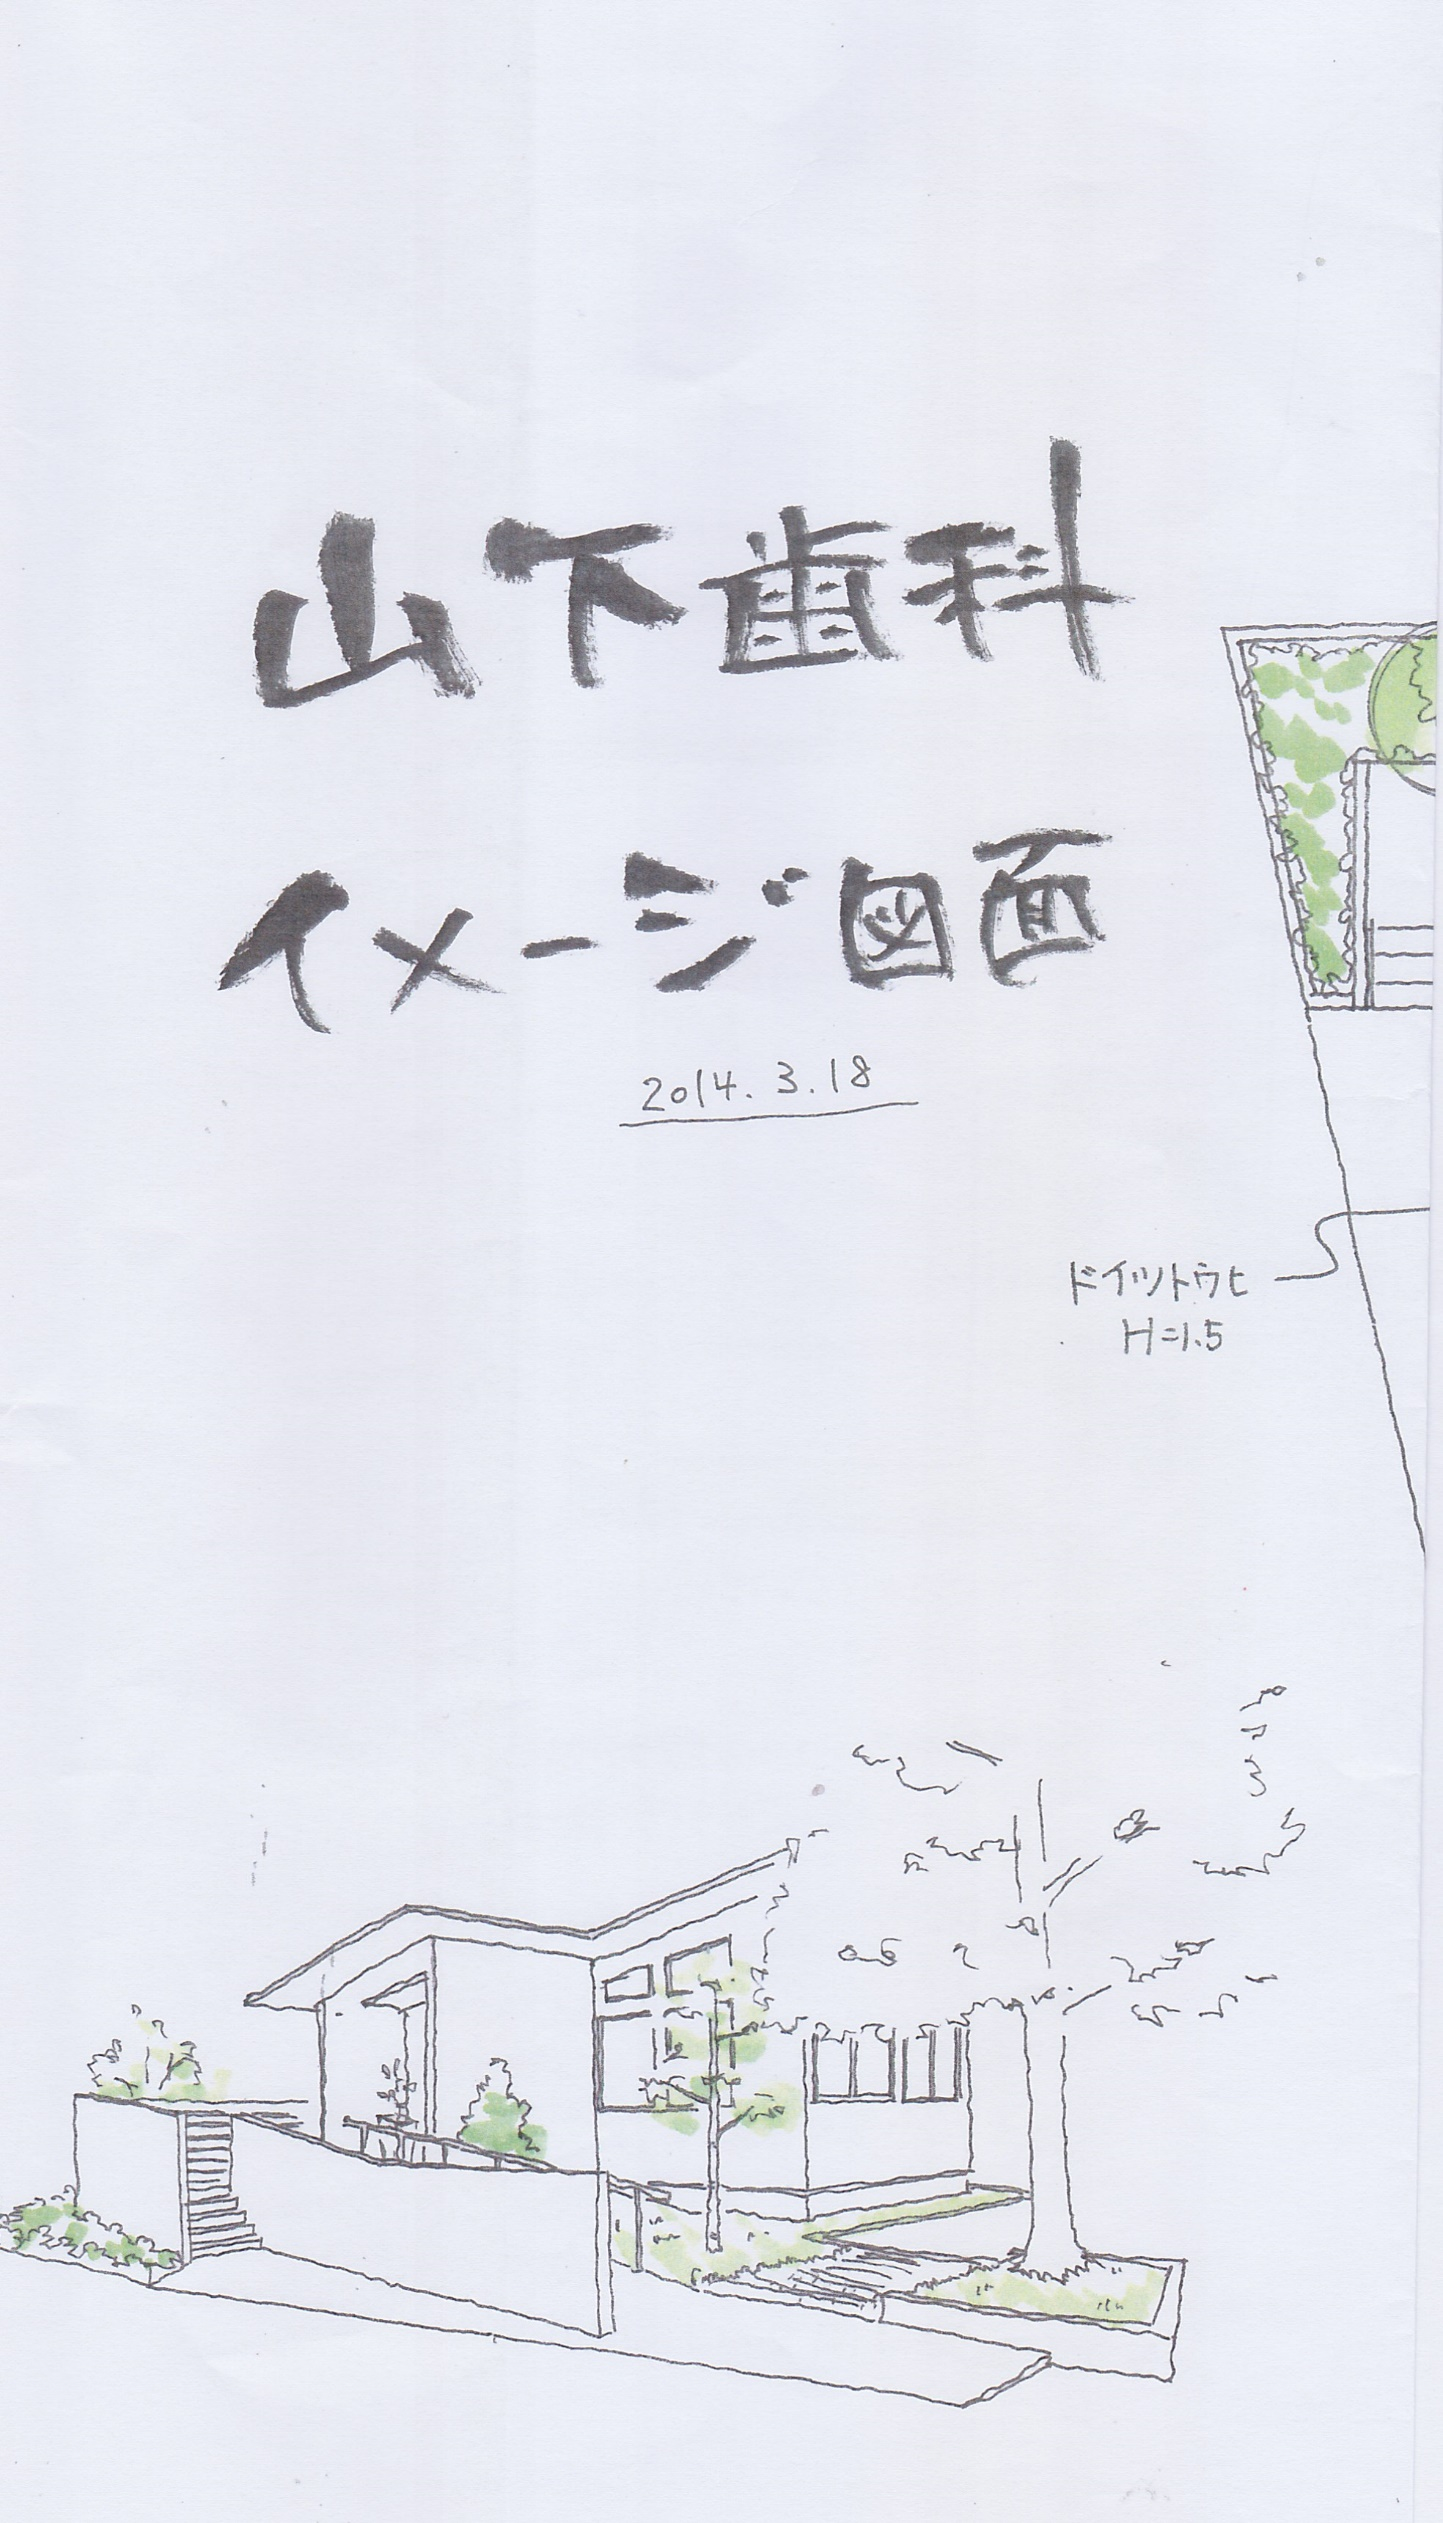 山下歯科
イメージ図面
2014.3.18
ドイツトウヒ
H=1.5